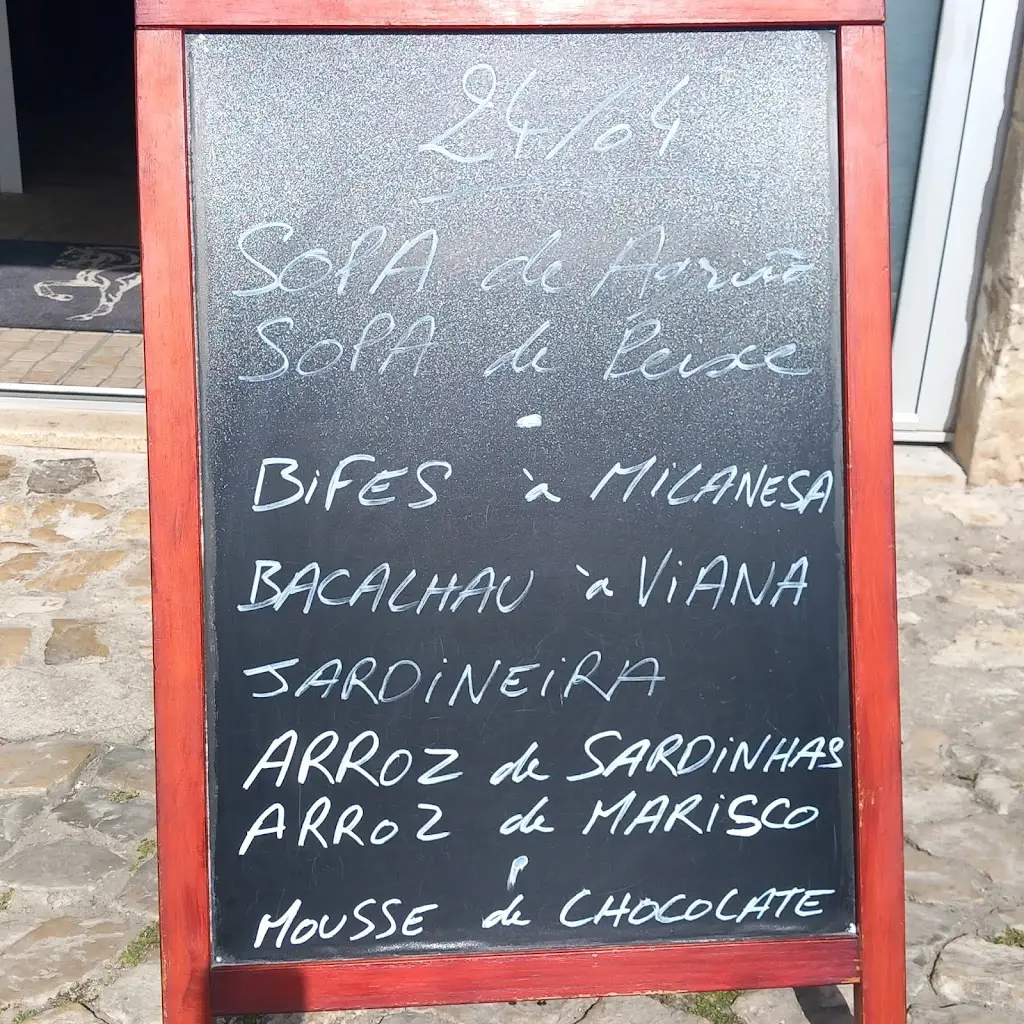 24/04
SOPA de Agrião
SOPA de Peixe
BiFES à MiLANESA
BACALHAU à ViANA
JARDiNEiRA
ARROZ de SARDiNHAS
ARROZ de MARiSCO
MOUSSE de CHOCOLATE